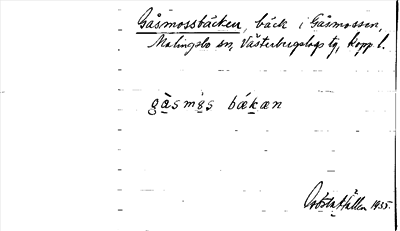 Gåsmossbäcken, bäck i Gåsmossen,
Malingsbo sn, Västerbergslags tg, Kopp. l.
gåsmås bækæn
1935.